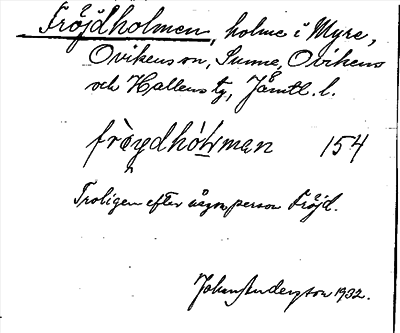 Fröjdholmen, holme i Myre,
Ovikens sn, Sunne, Ovikens
och Hallens tg, Jämtl. l.
fröydhólman 154
Troligen efter någon person Fröjd.
Johan Anderzson 1932.